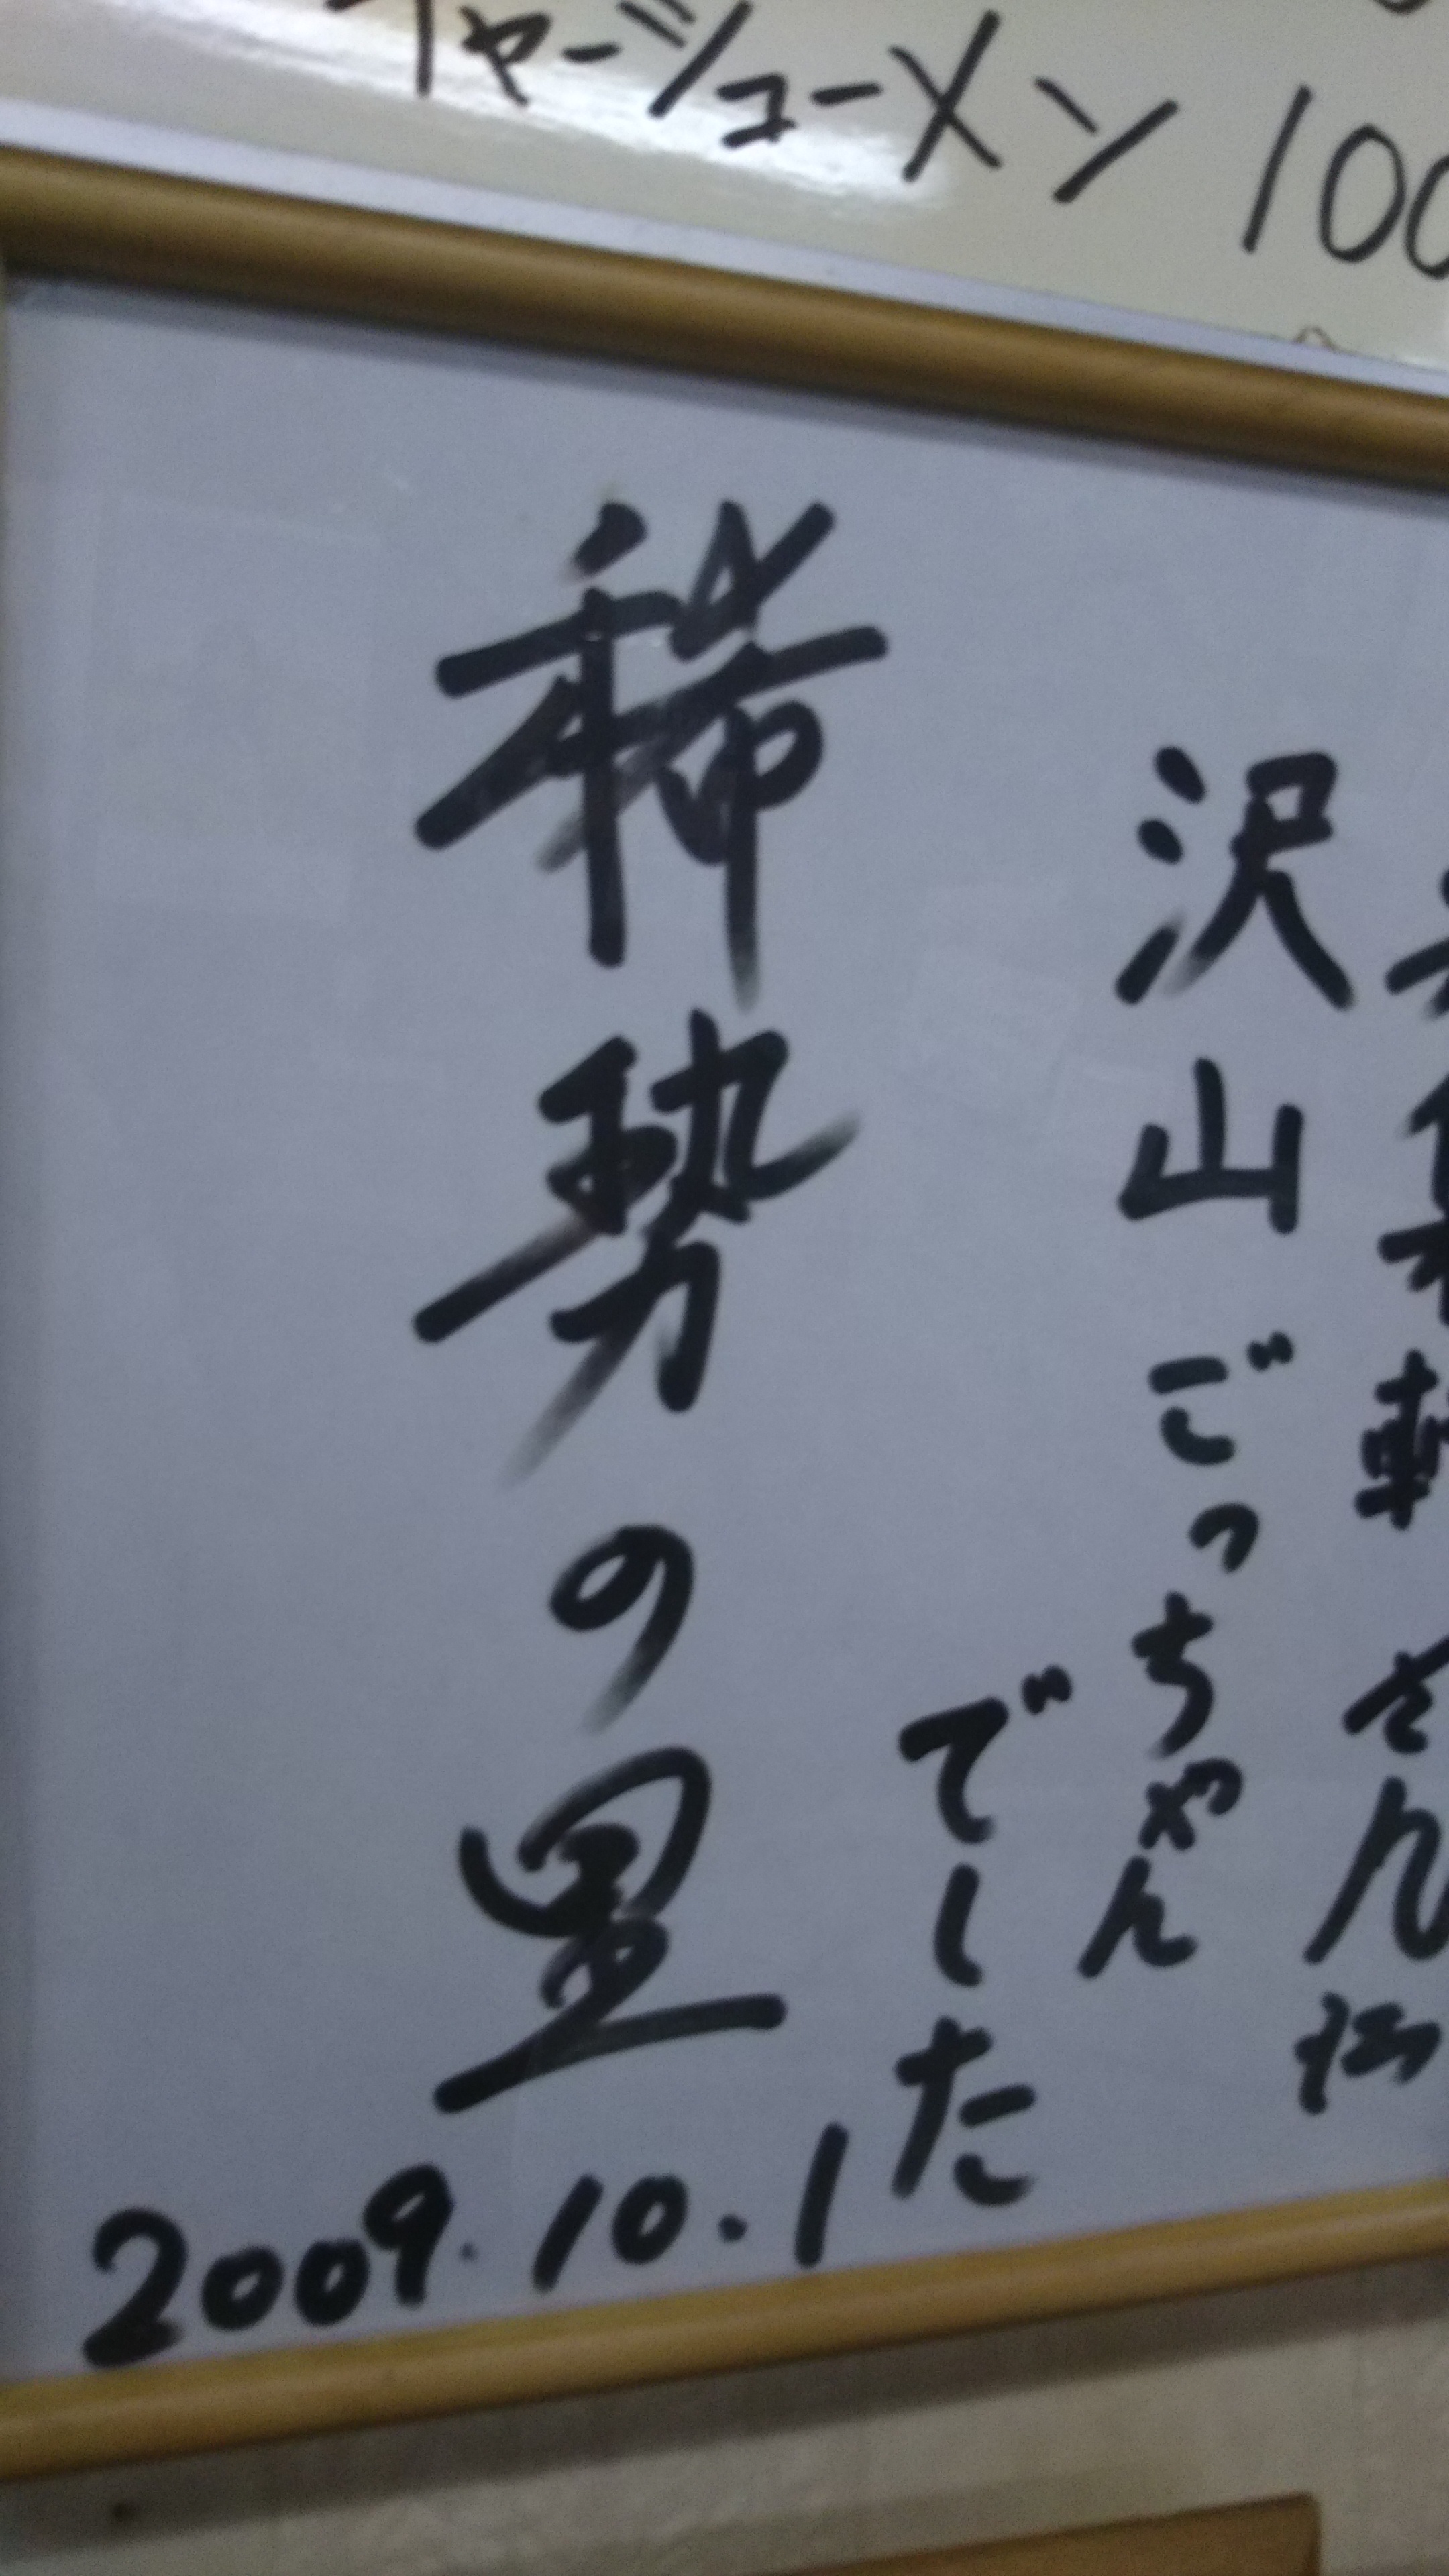 チャーシューメン 100
沢山ごっちゃん
でした
稀勢の里
2009.10.1